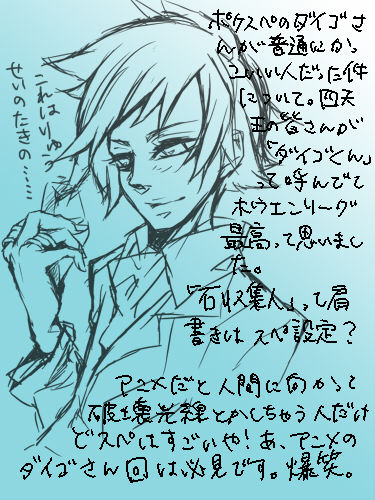 ポケスペのダイゴさ
んが普通にかっ
こいい人だった件
について。四天
王の皆さんが
「ダイゴくん」
って呼んでて
ホウエンリーグ
最高って思いまし
た。
「石収集人」って肩
書きはスペ設定？
アニメだと人間に向かって
破壊光線とかしちゃう人だけ
どスペはすごいや！あ、アニメの
ダイゴさん回は必見です。爆笑。
これはりゅう
せいのたきの……